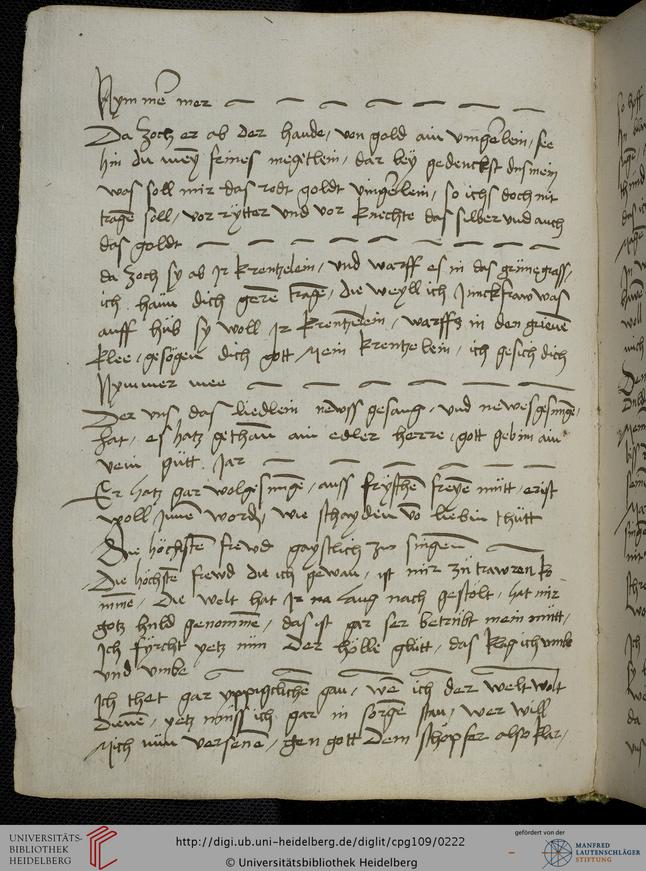 Nymme mer
Da zoch er ab der hande, von gold ain vingerlein, see
hin du mey feines megetlein, dar bey gedenckst du mein
was soll mir das rodt goldt vingerlein, so ichs doch nit
trage soll, vor rytter vnd vor knechte das silber vnd auch
das goldt
da zoch sy ab Jr krentzelein, vnd warff es in das grüne grass,
ich haun dich gere trage, die weyll ich Junckfraw was
auff hüb sy woll Jr krentzelein, warffs in den grienē
klee, gesögen dich gott Mein krentzelein, ich gesich dich
Nymmer mee
Der vns das liedlein newss gesang, vnd newes gesunge,
hat, es hatz gethaun ain edler herre, gott geb im ain
vein gütt Jar
Er hatz gar wolgesunge, auss fryschē freyē mütt, er ist
woll Jnnē wordē, wie schayden vō lieben thütt
Die höchstē frewd gaystlich zu singen
Die höchstē frewd die ich gewan, ist mir zü trawren ko
mme, Die welt hat Jr na lang nach gestölt, hat mir
gotz huld genomme, das ist gar ser betriebt mein mütt,
Ich fyrcht yetz nun Der hölle glütt, das klag ich vmbe
vnd vmbe
Ich thet gar yppigclichē gan, wē ich der welt wolt
dienē, yetz muss ich gar in sorgē stan, wer will
Mich nun versenē, gen gott Dem schöpfer also klar,
UNIVERSITÄTS-
BIBLIOTHEK
HEIDELBERG
http://digi.ub.uni-heidelberg.de/diglit/cpg109/0222
© Universitätsbibliothek Heidelberg
gefördert von der
MANFRED
LAUTENSCHLÄGER
STIFTUNG